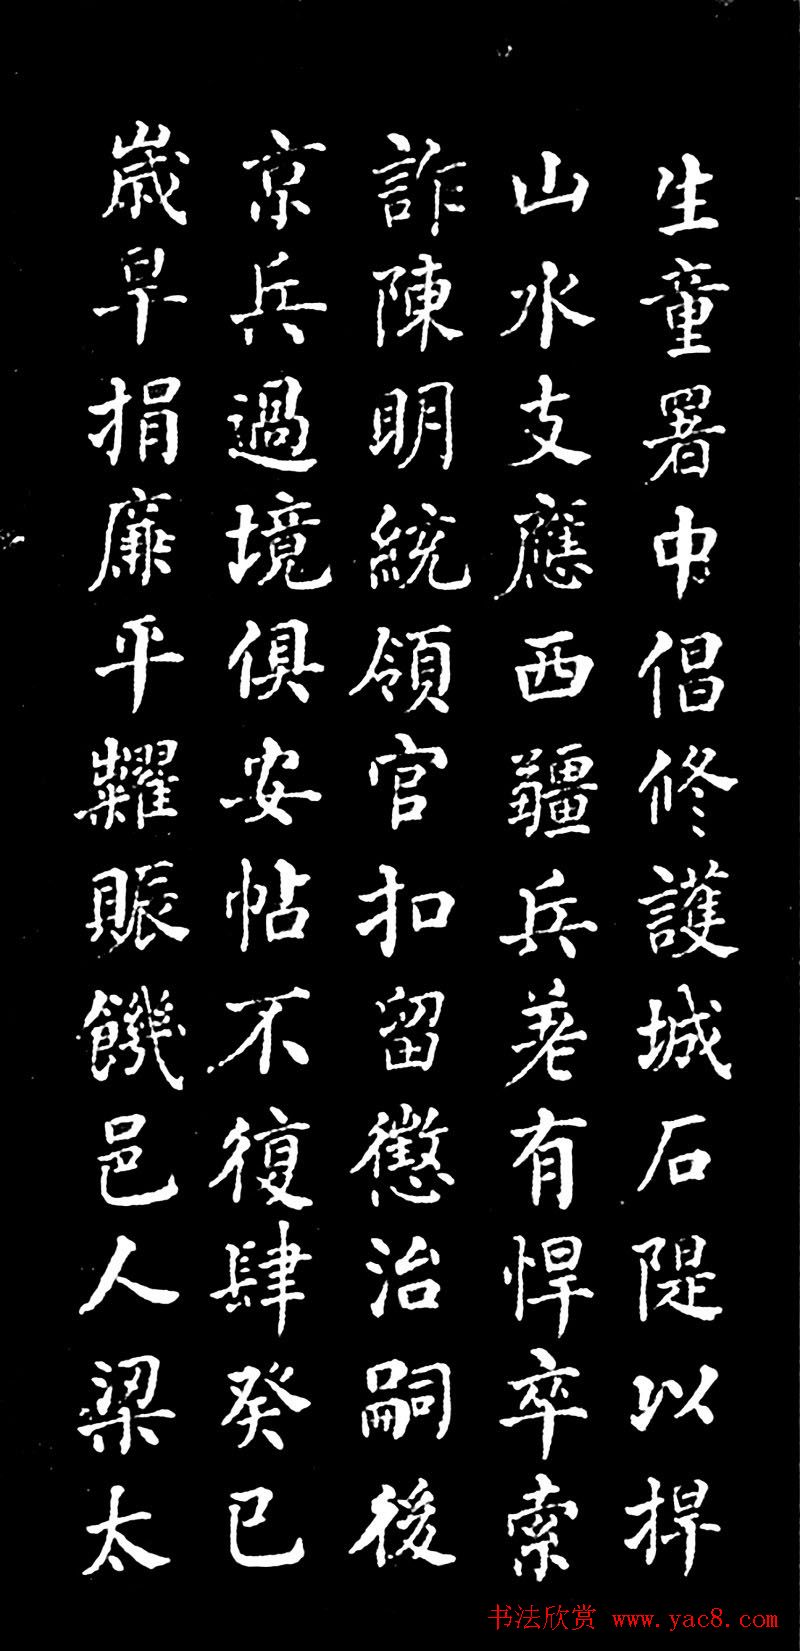 生童署中倡修護城石隄以捍
山水支應西疆兵差有悍卒索
詐陳明統領官扣留懲治嗣後
京兵過境俱安帖不復肆癸巳
歲旱捐廉平糶賑饑邑人梁太
书法欣赏 www.yac8.com